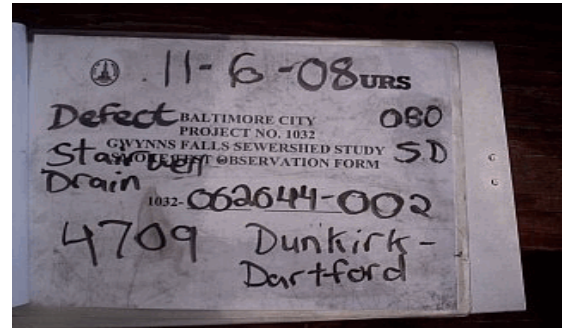 11-6-08 URS
Defect BALTIMORE CITY 080
PROJECT NO. 1032
GWYNNS FALLS SEWERSHED STUDY SD
Stairwell SMOKE TEST OBSERVATION FORM
Drain
1032-062644-002
4709 Dunkirk-
Dartford